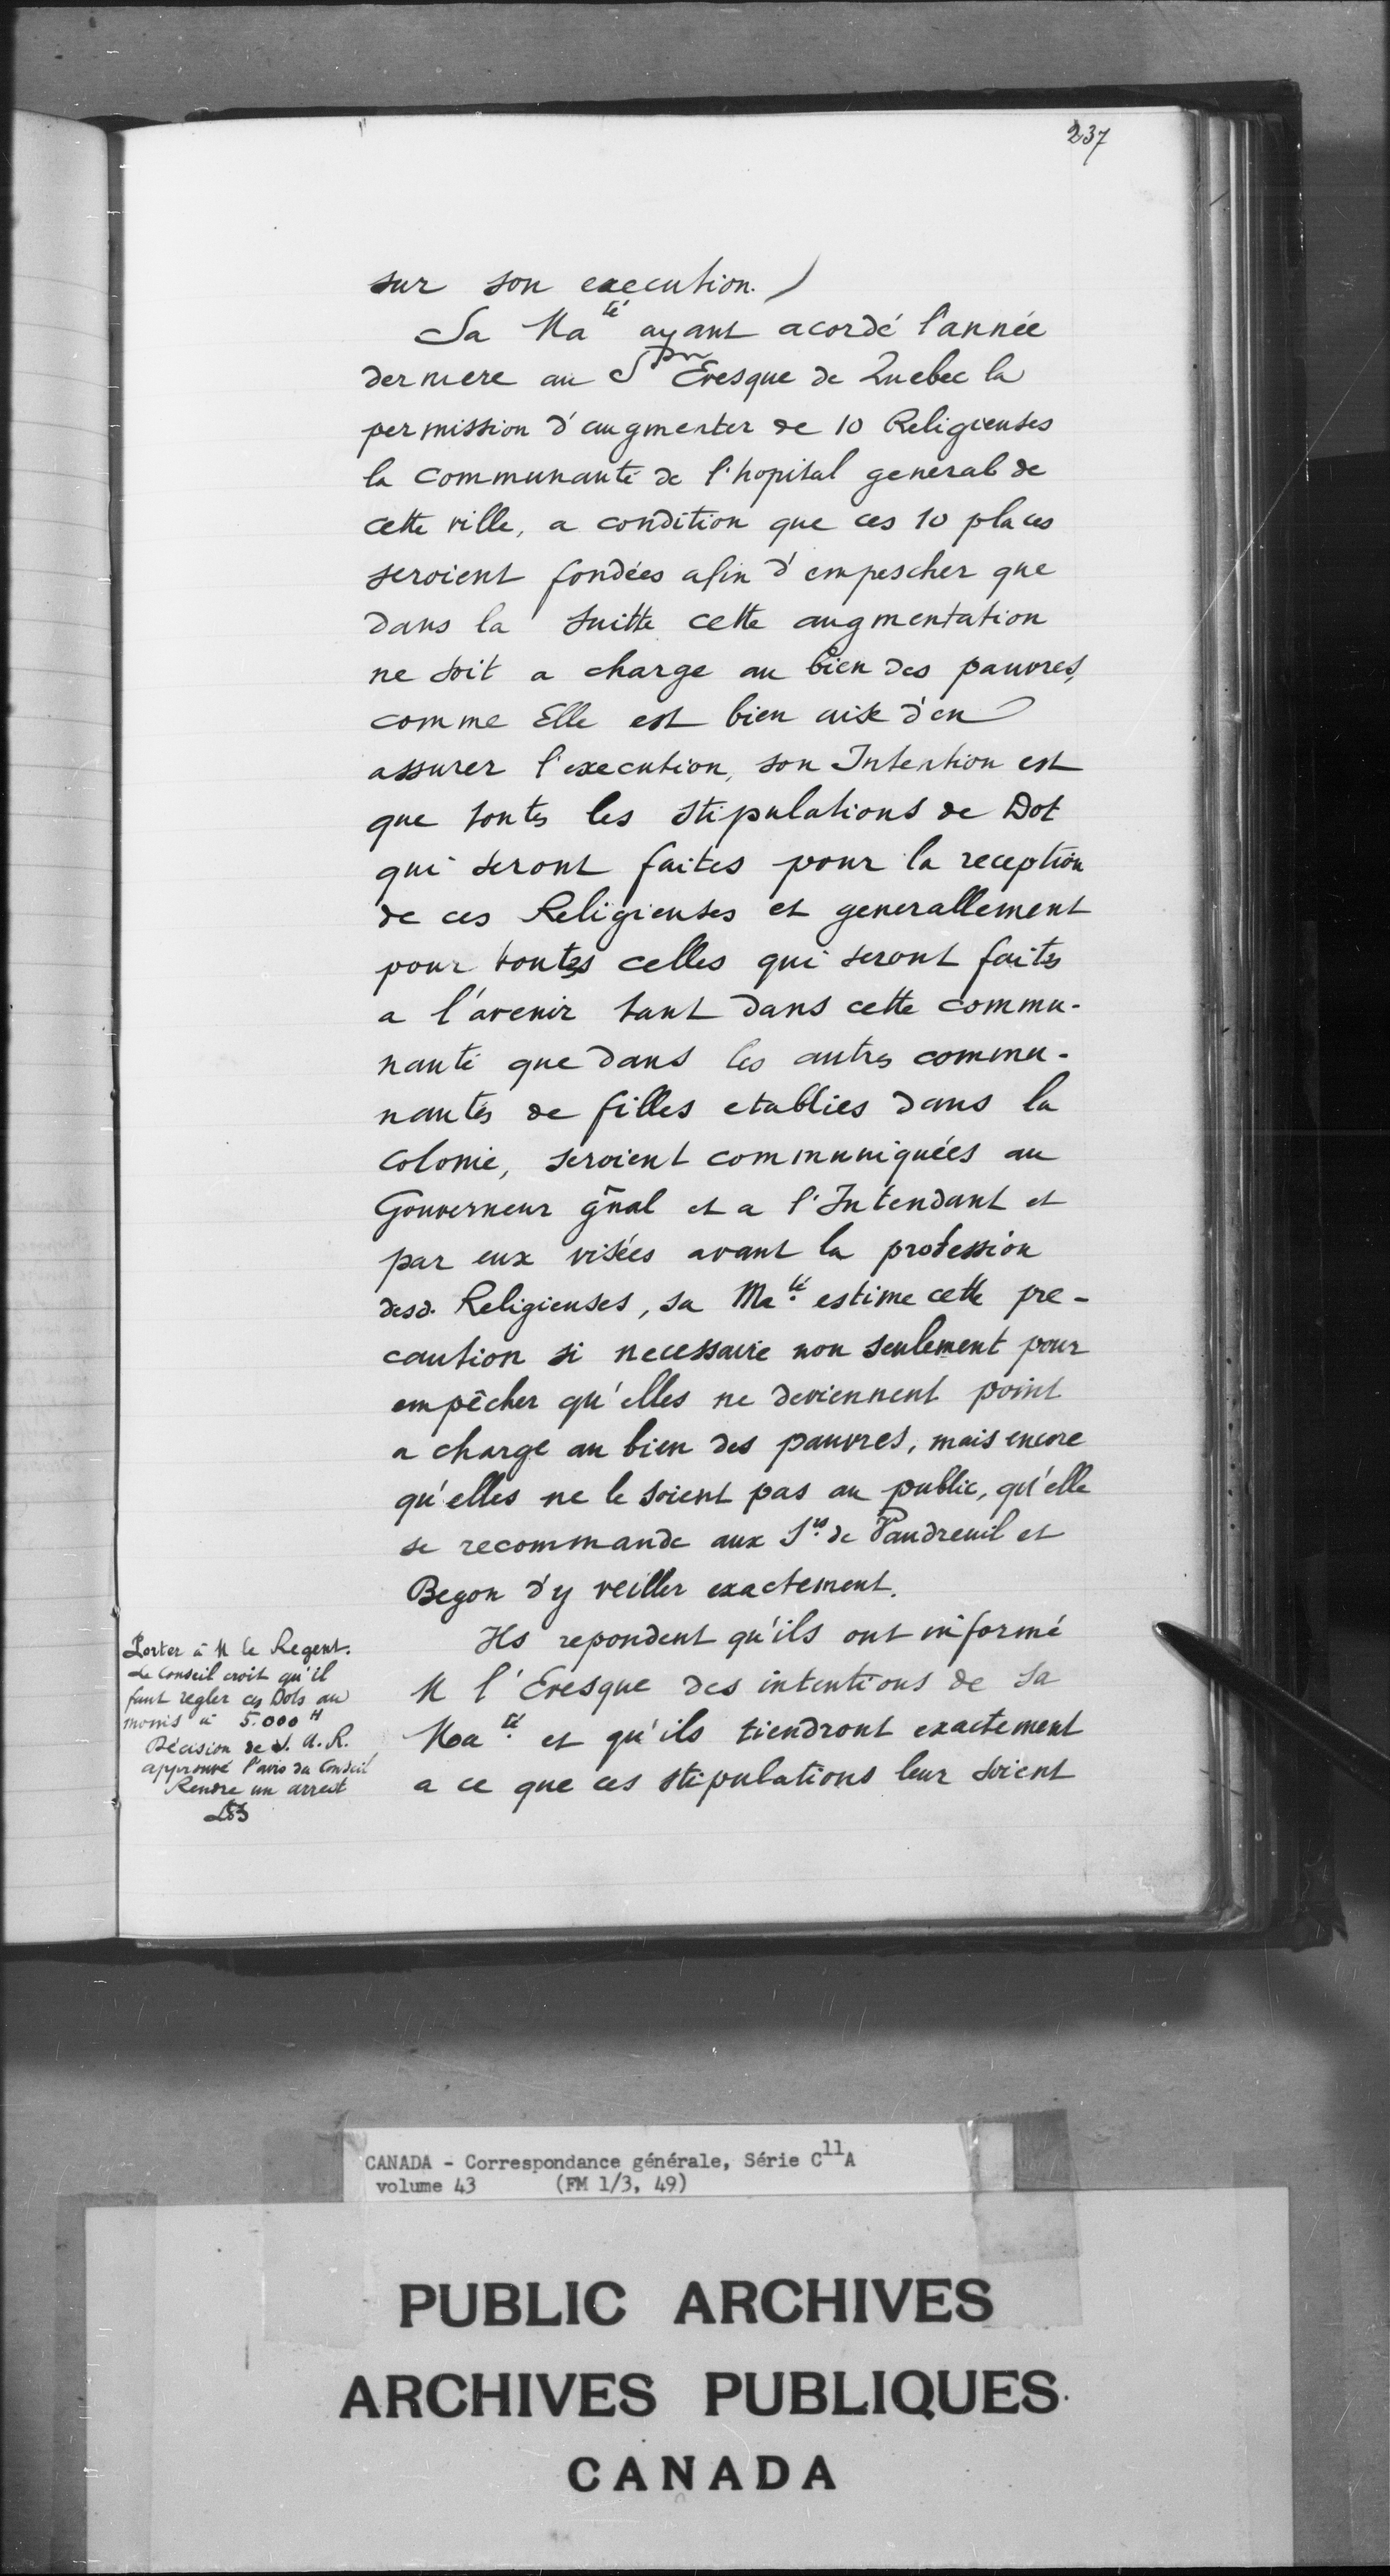 237
sur son execution.)
Sa Ma té ayant acordé l'année
derniere au S Evesque de Quebec la
permission d'augmenter de 10 Religieuses
la communauté de l'hopital general de
cette ville, a condition que ces 10 places
seroient fondées afin d'empescher que
dans la suitte cette augmentation
ne soit a charge au bien des pauvres,
comme Elle est bien aise d'en
assurer l'execution, son Intention est
que toutes les stipulations de Dot
qui seront faites pour la reception
de ces Religieuses et generallement
pour toutes celles qui seront faites
a l'avenir tant dans cette commu-
nauté que dans les autres commu-
nautés de filles etablies dans la
Colonie, seroient communiquées au
Gouverneur gñal et a l'Intendant et
par eux visées avant la profession
desd. Religieuses, sa Ma.té estime cette pre-
caution si necessaire non seulement pour
empêcher qu'elles ne deviennent point
a charge au bien des pauvres, mais encore
qu'elles ne le soient pas au public, qu'elle
se recommande aux S.rs de Vaudreuil et
Begon d'y veiller exactement.
Ils repondent qu'ils ont informé
M l'Evesque des intentions de Sa
Ma.té et qu'ils tiendront exactement
a ce que ces stipulations leur soient
Porter à M le Regent.
Le Conseil croit qu'il
faut regler ces Dots au
moins à 5.000 H
Décision de S. A. R.
approuvé l'avis du Conseil
Rendre un arrest
CANADA - Correspondance générale, Série C11A
volume 43 (FM 1/3, 49)
PUBLIC ARCHIVES
ARCHIVES PUBLIQUES
CANADA